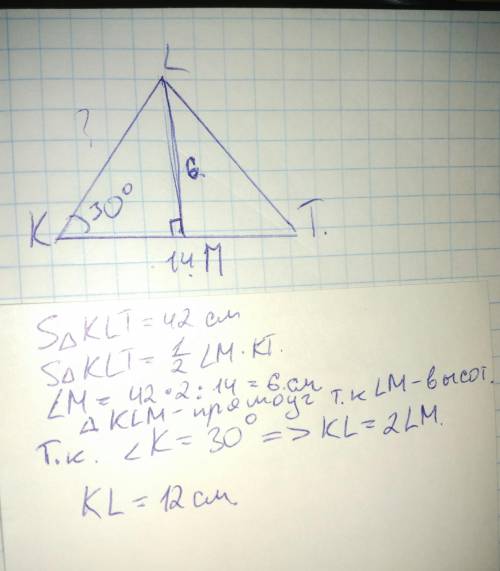 L
?
6.
K 30° T.
14 M
S△KLT = 42 см
S△KLT = 1/2 LM · KT.
LM = 42 · 2 : 14 = 6 см
△ KLM - прямоуг т.к LM - высот.
Т.к. ∠K = 30° => KL = 2LM.
KL = 12 см